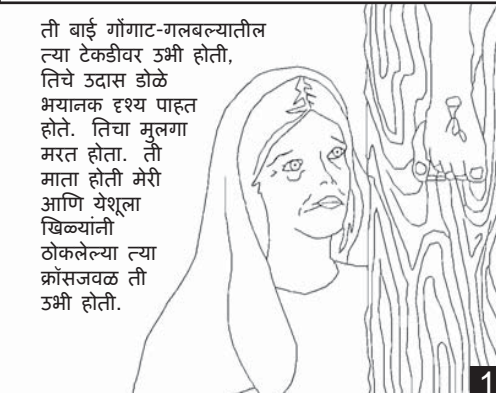 ती बाई गोंगाट-गलबल्यातील
त्या टेकडीवर उभी होती,
तिचे उदास डोळे
भयानक दृश्य पाहत
होते. तिचा मुलगा
मरत होता. ती
माता होती मेरी
आणि येशूला
खिळ्यांनी
ठोकलेल्या त्या
क्रॉसजवळ ती
उभी होती.
1